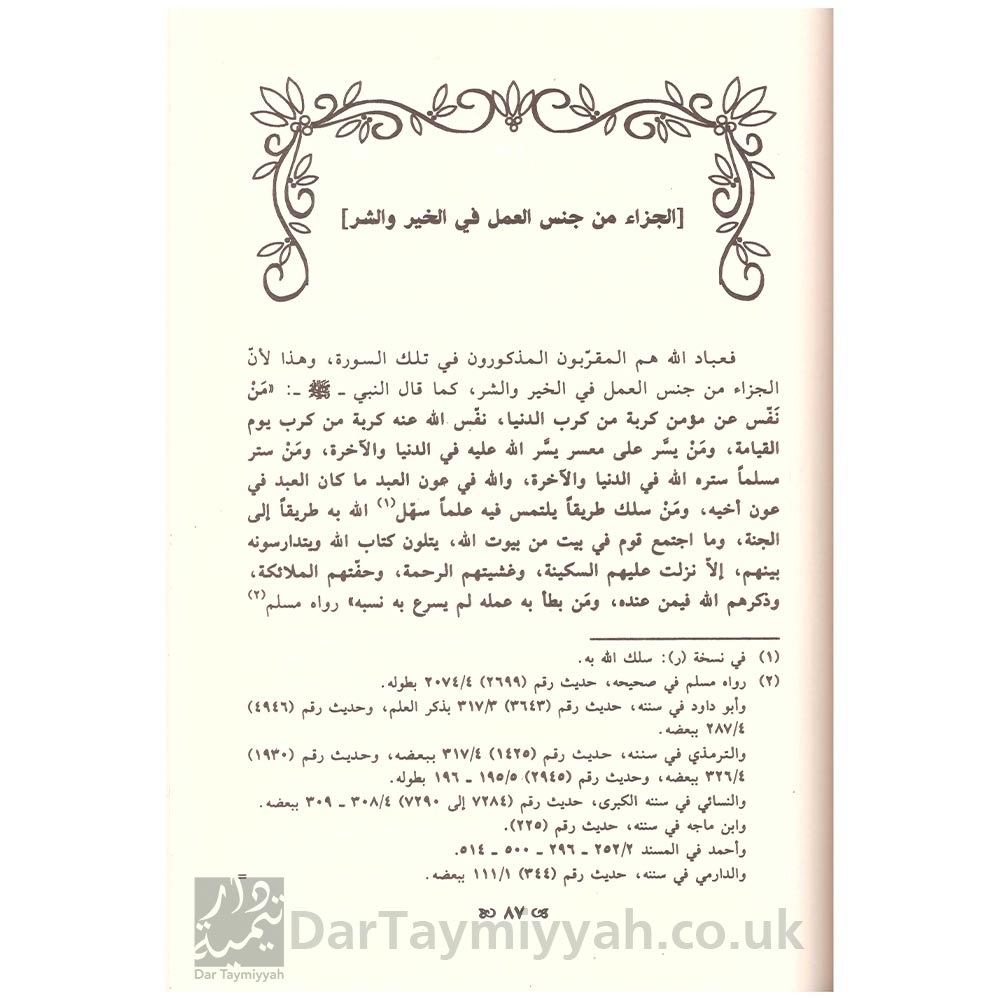 [الجزاء من جنس العمل في الخير والشر]
فعباد الله هم المقرّبون المذكورون في تلك السورة، وهذا لأنّ
الجزاء من جنس العمل في الخير والشر، كما قال النبي ـ ﷺ ـ: «مَنْ
نَفّس عن مؤمن كربة من كرب الدنيا، نفّس الله عنه كربة من كرب يوم
القيامة، ومَنْ يسَّر على معسر يسَّر الله عليه في الدنيا والآخرة، ومَنْ ستر
مسلماً ستره الله في الدنيا والآخرة، والله في عون العبد ما كان العبد في
عون أخيه، ومَنْ سلك طريقاً يلتمس فيه علماً سهّل(١) الله به طريقاً إلى
الجنة، وما اجتمع قوم في بيت من بيوت الله، يتلون كتاب الله ويتدارسونه
بينهم، إلاّ نزلت عليهم السكينة، وغشيتهم الرحمة، وحفّتهم الملائكة،
وذكرهم الله فيمن عنده، ومَن بطأ به عمله لم يسرع به نسبه» رواه مسلم(٢)
(١) في نسخة (ر): سلك الله به.
(٢) رواه مسلم في صحيحه، حديث رقم (٢٦٩٩) ٢٠٧٤/٤ بطوله.
وأبو داود في سننه، حديث رقم (٣٦٤٣) ٣١٧/٣ بذكر العلم، وحديث رقم (٤٩٤٦)
٢٨٧/٤ ببعضه.
والترمذي في سننه، حديث رقم (١٤٢٥) ٣١٧/٤ ببعضه، وحديث رقم (١٩٣٠)
٣٢٦/٤ ببعضه، وحديث رقم (٢٩٤٥) ١٩٥/٥ ـ ١٩٦ بطوله.
والنسائي في سننه الكبرى، حديث رقم (٧٢٨٤ إلى ٧٢٩٠) ٣٠٨/٤ ـ ٣٠٩ ببعضه.
وابن ماجه في سننه، حديث رقم (٢٢٥).
وأحمد في المسند ٢٥٢/٢ ـ ٢٩٦ ـ ٥٠٠ ـ ٥١٤.
والدارمي في سننه، حديث رقم (٣٤٤) ١١١/١ ببعضه. =
٨٧
دار تيمية
Dar Taymiyyah
DarTaymiyyah.co.uk